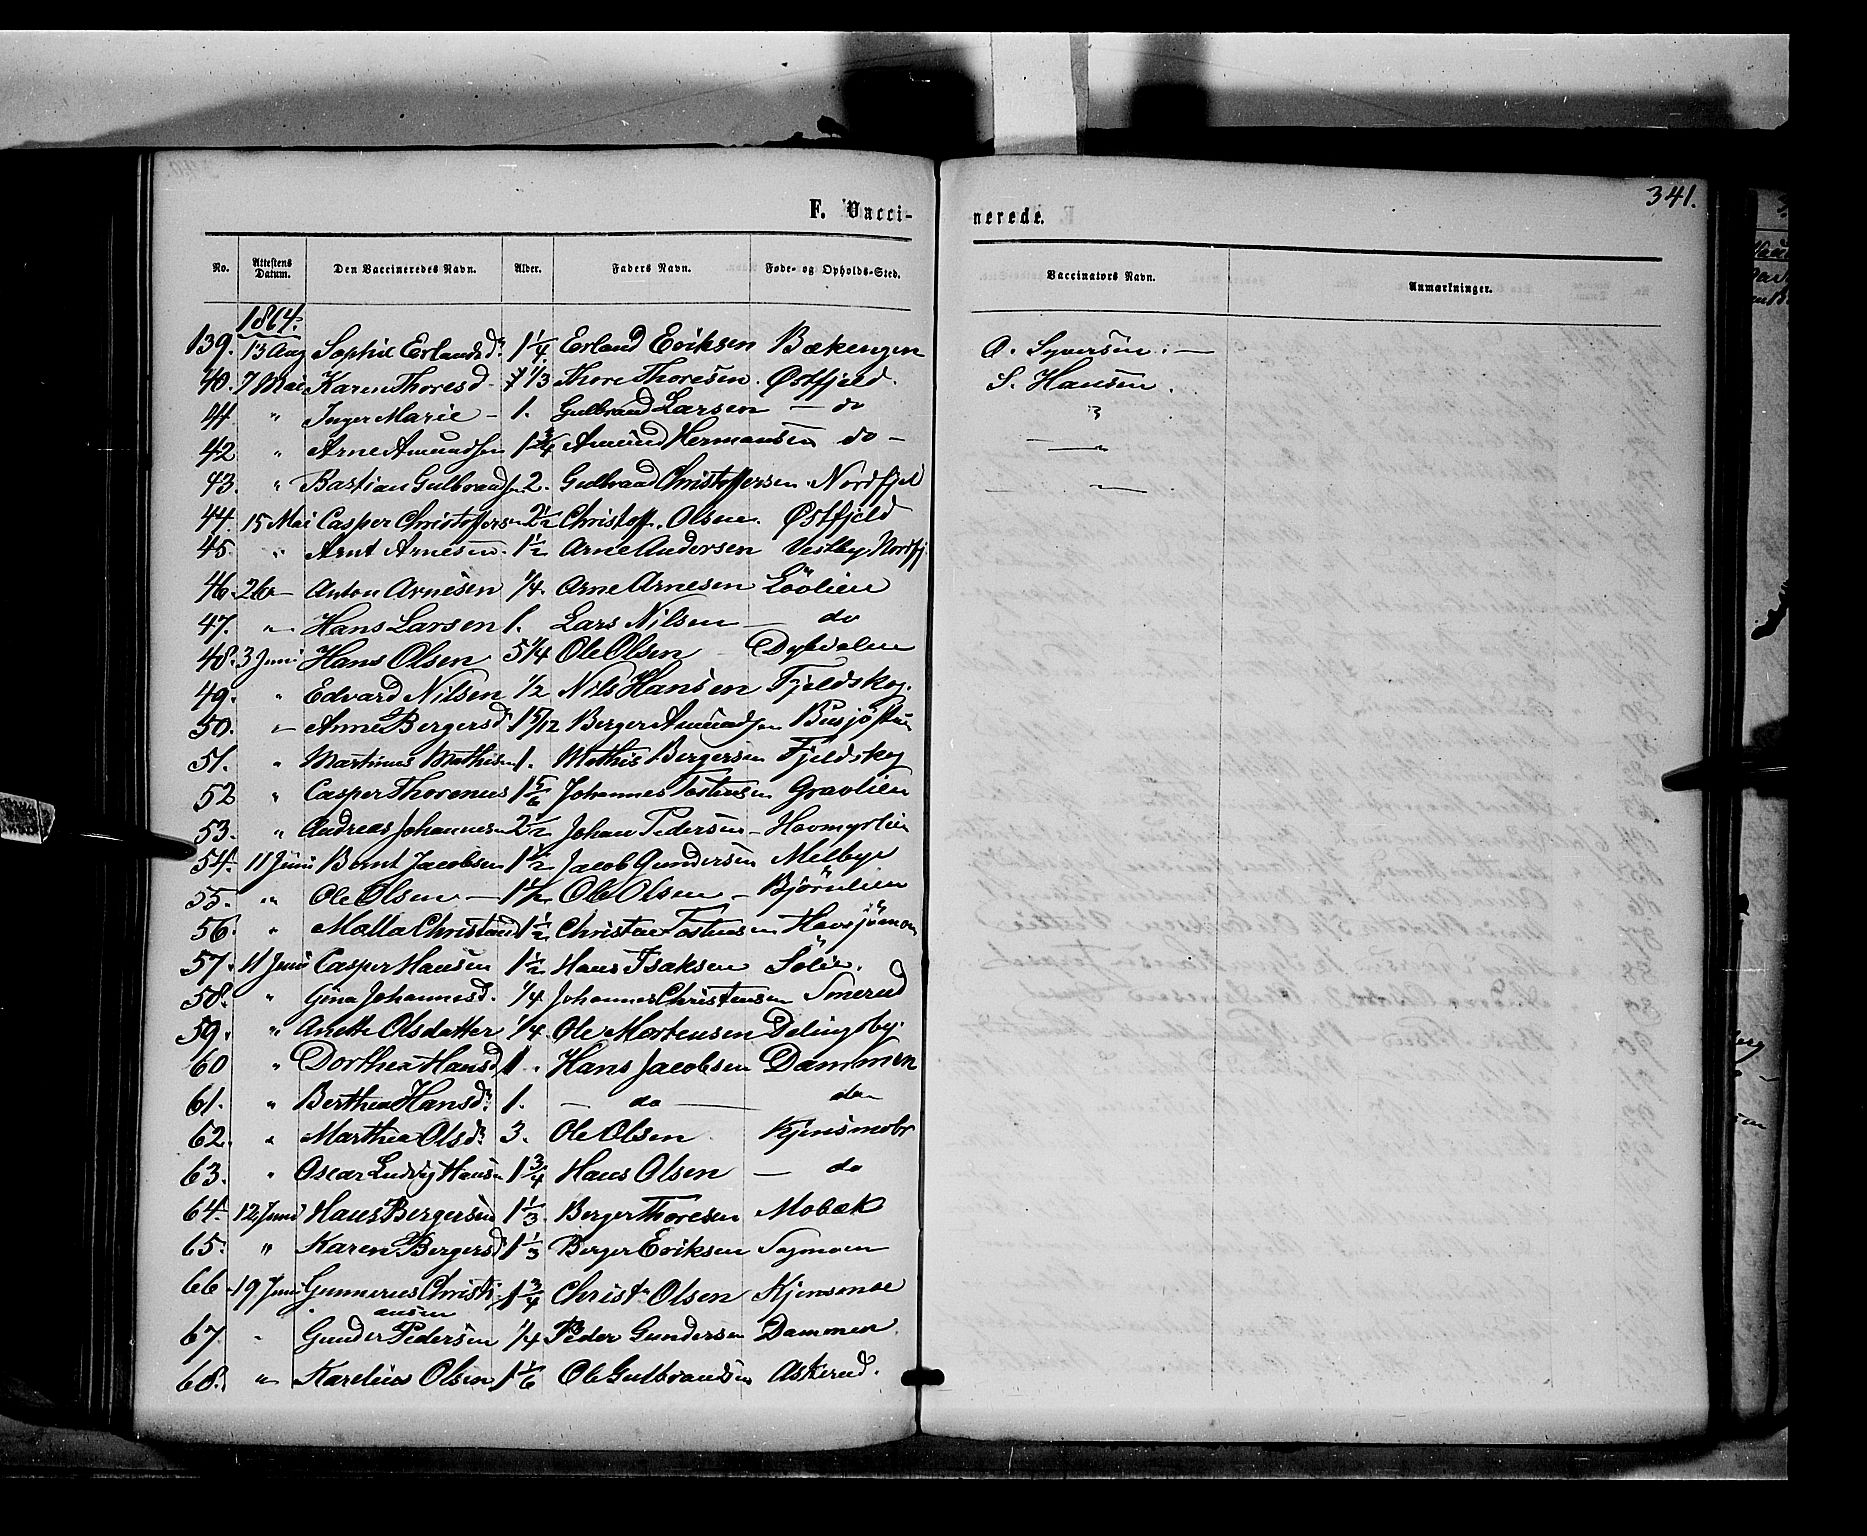 341.
F. Vacci- nerede.
No. Attestens Datum. Den Vaccineredes Navn. Alder. Faders Navn. Føde- og Opholds-Sted. Vaccinators Navn. Anmærkninger.
1864.
139. 13 Aug Sophie Erlandsd. 1 1/4. Erland Eriksen Bækengen O. Syversen. —
40. 7 Mai Karen Thoresd - 1 1/3 Thore Thoresen. Østfjeld. S. Hansen.
41 " Inger Marie - 1. Gulbrand Larsen — do "
42 " Arne Amundsen 1 3/4 Amund Hermansen do - — "
43. " Bastian Gulbrandsen 2. Gulbrand Christoffersen Nordfjeld — " —
44. 15 Mai Casper Christoffersen 2 1/2 Christoff. Olsen. Østfjeld
45. " Arnt Arnesen. 1 1/2 Arne Andersen Vestby, Nordfj.
46. 26 — Anton Arnesen 1/4. Arne Arnesen Löolien
47. " Hans Larsen 1. Lars Nilsen — do
48. 3 Juni Hans Olsen 5 1/4 Ole Olsen Dybdalen
49. " Edvard Nilsen 1/2 Nils Hansen Fjeldskog.
50. " Anne Bergersd. 1 5/12 Berger Amundsen
51. " Martinus Mathisen 1. Mathis Bergersen Fjeldskog
52 " Casper Thorenus 1 5/6 Johannes Tostensen Gravlien
53. " Andreas Johannesen 2 1/2 Johan Pedersen — Havmyrlien
54. 11 Juni Bernt Jacobsen 1 1/2 Jacob Gundersen Melbye
55. " Ole Olsen — 1 1/2 Ole Olsen — Björnlien
56. " Malla Christiansd 1 1/2 Christian Tostensen Havsjömoen
57. 11 Juni Casper Hansen 1 1/2 Hans Isaksen Sölie.
58. " Gina Johannesd. 1/4 Johannes Christensen Smerud
59. " Anette Olsdatter 1/4. Ole Mortensen Dalingsby.
60 " Dorthea Hansd 1 . Hans Jacobsen Dammen
61. " Berthea Hansd. 1. — do — do
62. " Marthea Olsd. 3. Ole Olsen Kjensmobr
63. " Oscar Ludvig Hansen 1 3/4 Hans Olsen — do
64. 12 Juni Hans Bergersen 1 1/3. Berger Thoresen Mobæk
65. " Karen Bergersd 1 1/3 Berger Eriksen Sagmoen
66. 19 Juni Gunnerius Christi- 1 3/4 Christn Olsen Kjensmoe
ansen
67. " Gunder Pedersen 1/4 Peder Gundersen Dammen.
68. " Karelius Olsen 1 1/6 Ole Gulbrandsen Askerud.